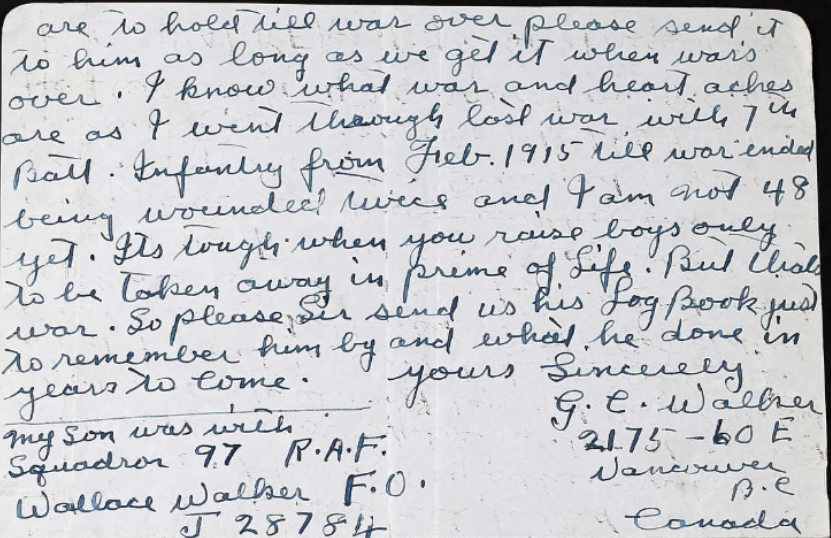 are to hold till war over please send it
to him as long as we get it when wars
over. I know what war and heart aches
are as I went through last war with 7th
Batt. Infantry from Feb. 1915 till war ended
being wounded twice and I am not 48
yet. Its tough when you raise boys only
to be taken away in prime of Life. But thats
war. So please Sir send us his Log Book just
to remember him by and what he done in
years to come. yours Sincerely
G. C. Walker
2175 - 60 E
Vancouver
B.C
Canada
my son was with
Squadron 97 R.A.F.
Wallace Walker F.O.
J 28784